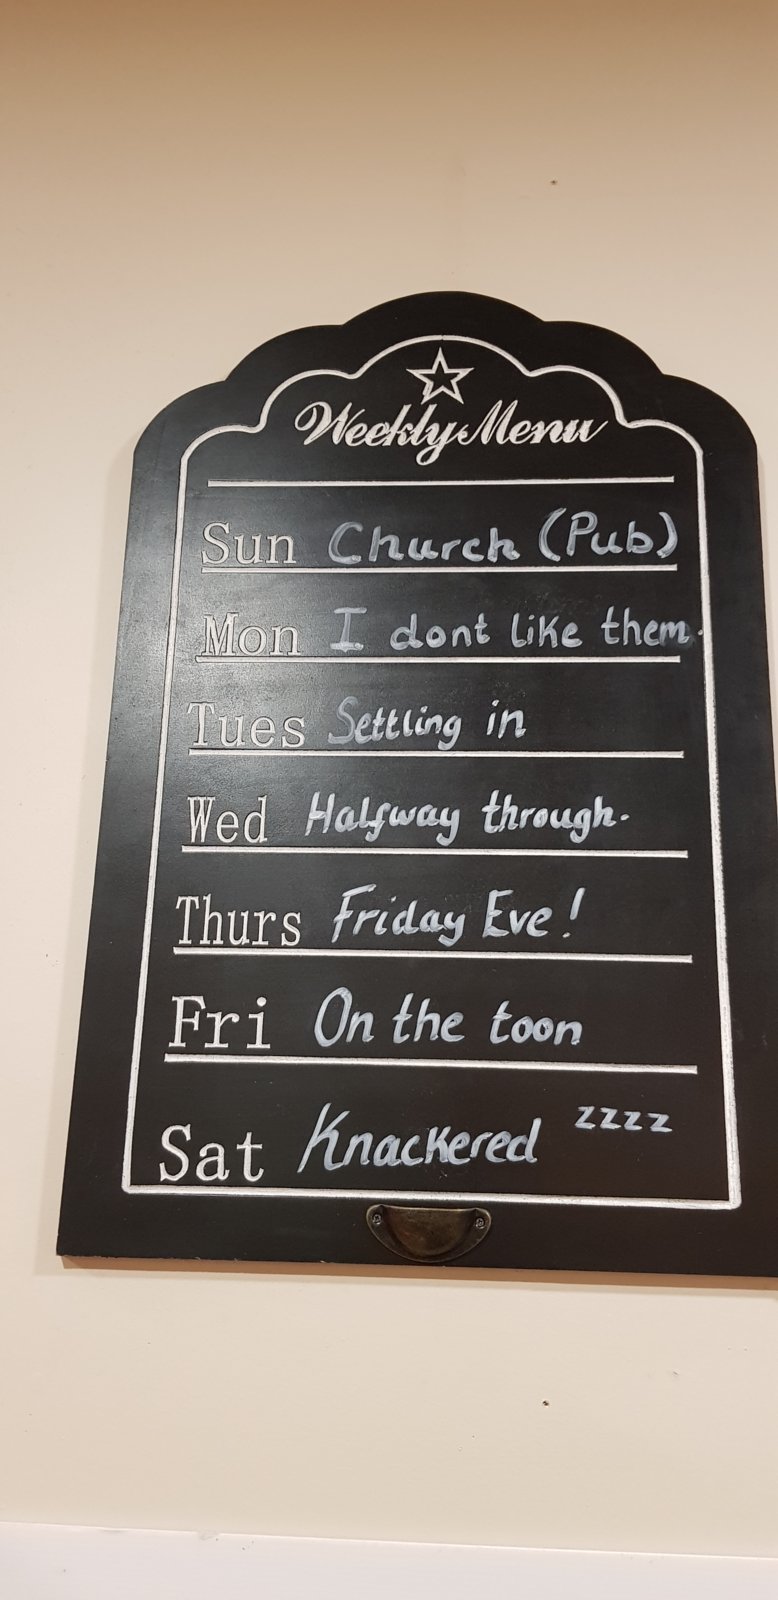 Weekly Menu
Sun Church (Pub)
Mon I dont like them.
Tues Settling in
Wed Halfway through.
Thurs Friday Eve!
Fri On the toon
Sat Knackered zzzz